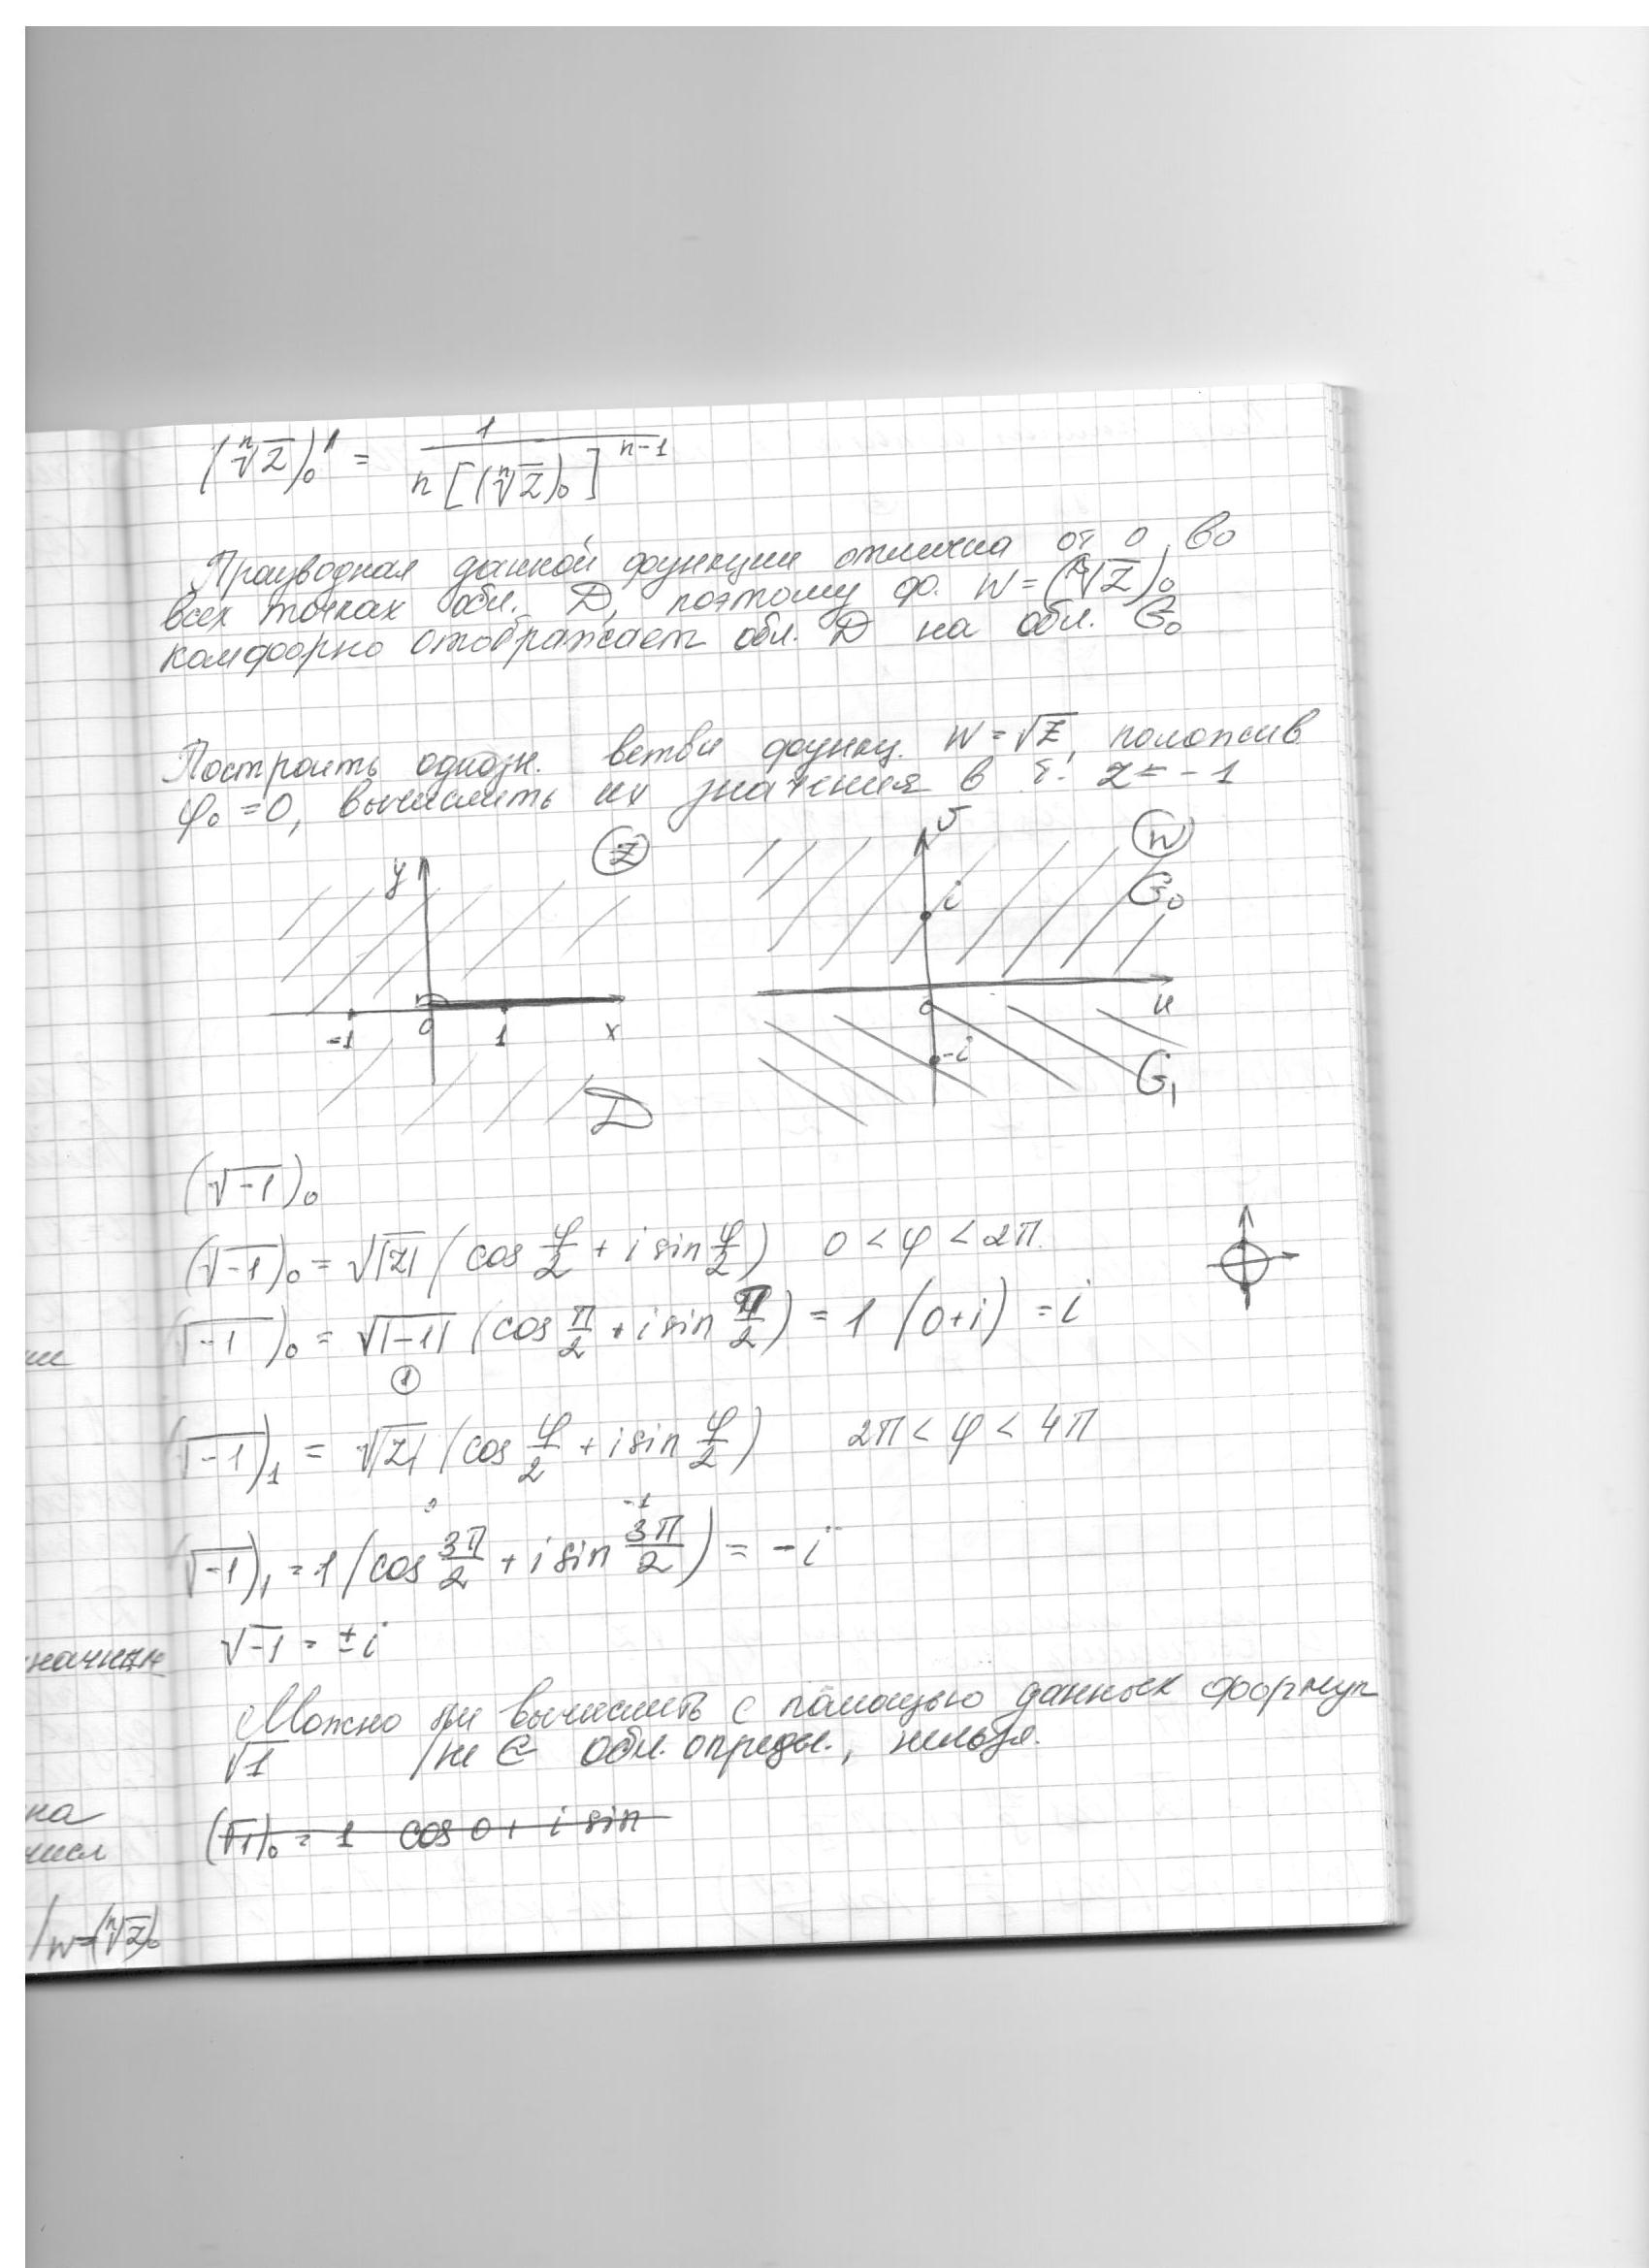 (ⁿ√z)₀' = 1 / n[(ⁿ√z)₀]ⁿ⁻¹
Производная данной функции отлична от 0 во
всех точках обл. D, поэтому ф. w = (ⁿ√z)₀
комфорно отображает обл. D на обл. G₀
Построить однозн. ветви функц. w = √z, положив
φ₀ = 0, вычислить их значения в т. z = -1
y z
-1 0 1 x
D
v w
i G₀
0 u
-i G₁
(√-1)₀
(√-1)₀ = √|z| (cos φ/2 + i sin φ/2) 0 < φ < 2π.
(√-1)₀ = √|-1| (cos π/2 + i sin π/2) = 1 (0+i) = i
1
(√-1)₁ = √|z| (cos φ/2 + i sin φ/2) 2π < φ < 4π
0 -1
(√-1)₁ = 1 (cos 3π/2 + i sin 3π/2) = -i
√-1 = ± i
Можно ли вычислить с помощью данных формул
√1 не ∈ обл. определ., нельзя.
(√1)₀ = 1 cos 0 + i sin
на
числ
w = (ⁿ√z)₀